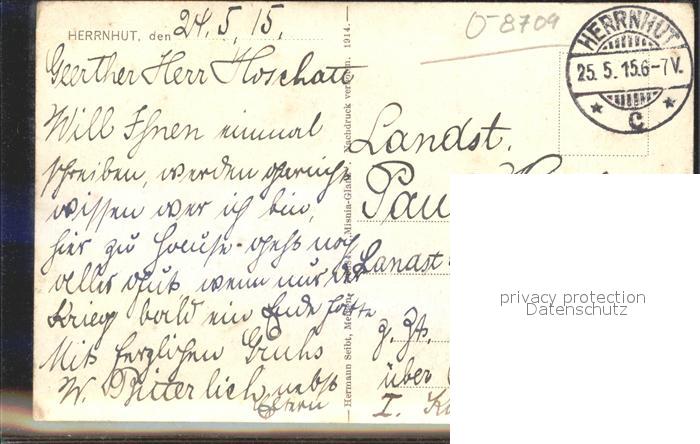 HERRNHUT, den 24. 5. 15.
Geerther Herr Hoschatt
Will Ihnen einmal
schreiben, werden gar nich
wissen wer ich bin,
hier zu Hause geht noch
alles gut, wenn nur der
Krieg bald ein Ende hätte
Mit herzlichen Gruhs
W. Bitterlich nebst
Eltern
Hermann Seibt, Meißen
Misnia-Glanz. Nachdruck verboten. 1914.
O-8709
HERRNHUT
25. 5. 15. 6-7 V.
* C *
Landst.
Pau
Landst
z. Zt.
über
I.
privacy protection
Datenschutz